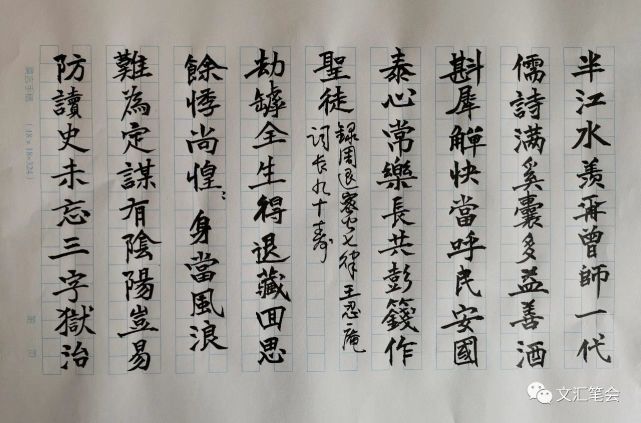 半江水羨再曾師一代
儒詩满奚囊多益善酒
斟犀觶快當呼民安國
泰心常樂長共彭籛作
聖徒
錄周退密丈七律王忍庵
词长九十寿
劫罅全生得退藏回思
餘悸尚惶〻身當風浪
難為定謀有陰陽豈易
防讀史未忘三字獄治
文汇笔会